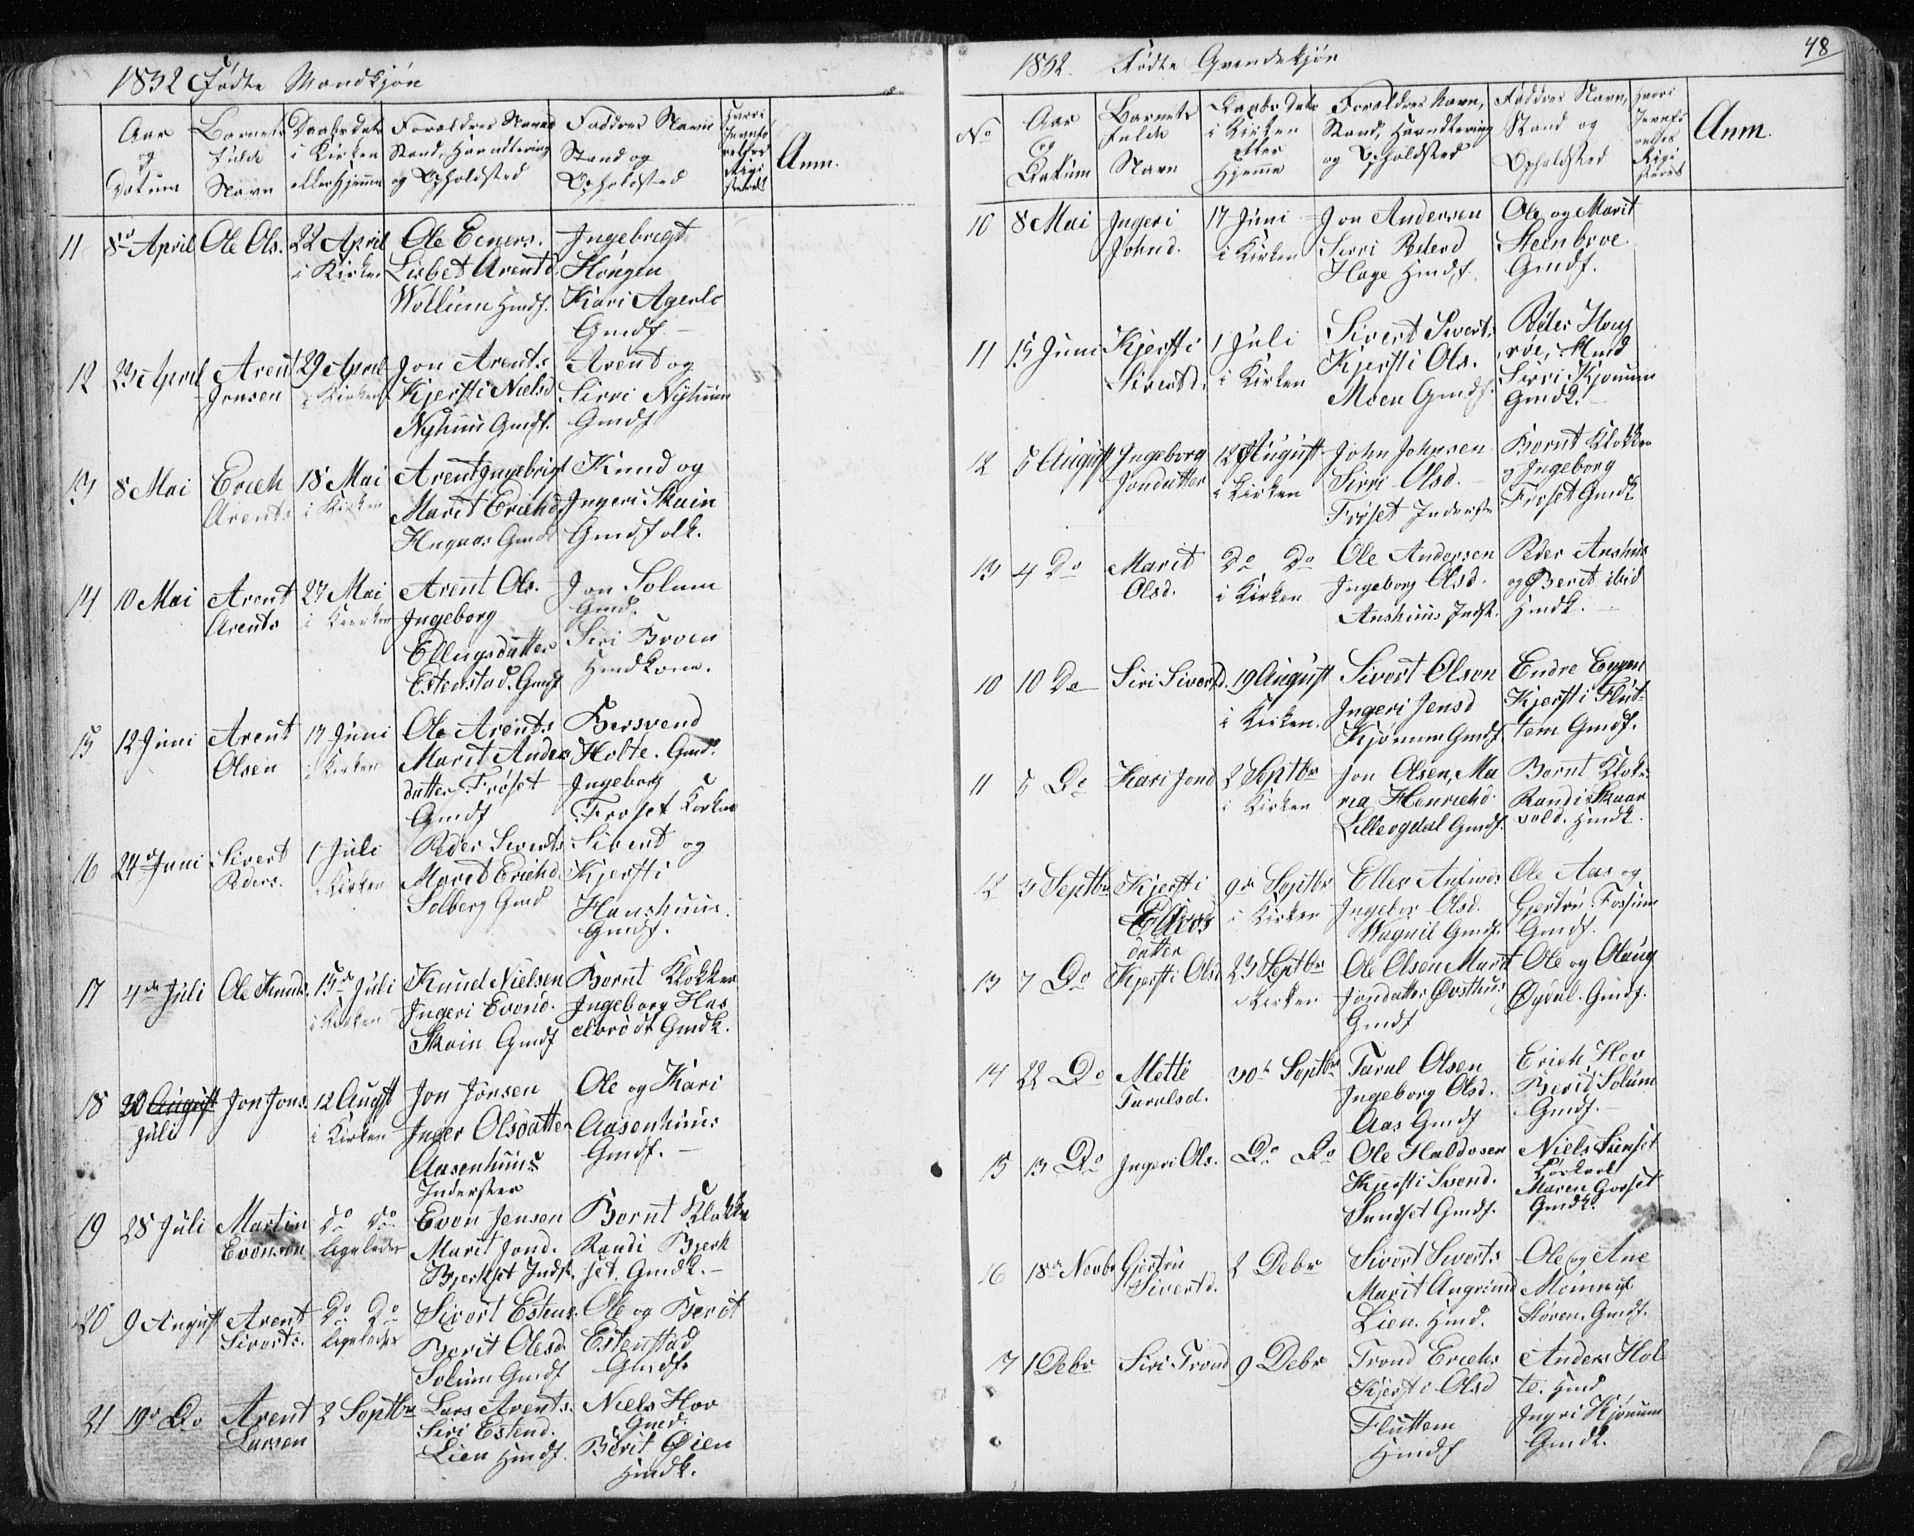 1832 Fødte Mandkjøn
Aar og Datum
Barnets fulde Navn
Daabs Dato i Kirken eller Hjemme
Forældres Navne Stand, Haandtering og Opholdsted
Faddres Navne Stand og Opholdsted
Anm.
11 8de April Ole Ols. 22 April i Kirken
Ole Einers. Lisbet Arentd. Wollum Hmdf.
Ingebrigt Hongen Kari Agerlo Gmdf.
12 23 April Arent Jonsen 29 April i Kirken
Jon Arents. Kjersti Nielsd Nyhuus Gmdf.
Arend og Sirri Nyhuus Gmdf
13 8 Mai Erich Arents 18 Mai i Kirken
Arent Ingebrigt Marit Erichd. Gmdf
Knud og Ingeri Skain Gmdfolk.
14 10 Mai Arent Arents 27 Mai i Kirken
Arent Ols. Ingeborg Ellingsdatter Estenstad. Gmdf
Jon Solum Gmd. Siri Broen Hmdkone.
15 12 Juni Arent Olsen 17 Juni i Kirken
Ole Arents. Marit Anders datter Frøset Gmdf
Bersvend Holte. Gmd. Ingeborg Frøset
16 24de Juni Sivert Peders. 1 Juli i Kirken
Peder Siverts Marit Erichd Solberg Gmd
Sivert og Kjersti Hanshuus. Gmdf.
17 4de Juli Ole Knuds. 15de Juli i Kirken
Knud Nielsen Ingeri Evend. Skain Gmdf
Bernt Klokker Ingeborg Has elbrødt Gmdk.
18 30 August Juli Jon Jons. 12 August i Kirken
Jon Jonsen Inger Olsdatter Aasenhuus Inderster
Ole og Kari Aasenhuus Gmdf.
19 28 Juli Martin Evensen do do ligeledes
Even Jensen Marit Jond. Bjerkset Indst.
Bernt Klokker Randi Bjerk set. Gmdk.
20 9 August Arent Siverts. Do Do ligeledes
Sivert Estens. Berit Olesd. Solum Gmdf
Ole og Berit Estenstad Gmdf.
21 19de Do Arent Larsen 2 Septbr
Lars Arents. Siri Estend. Lien Hmdf.
Niels Hov Gmd. Berit Øien Hmdk.
1832. Fødte Qvindekjøn
48
No
Aar og Datum
Barnets fulde Navn
Daabs Dato i Kirken eller Hjemme
Forældres Navn, Stand, Haandtering og Opholdsted
Faddres Navn, Stand og Opholdsted
Anm.
10 8 Mai Ingeri Johnd. 17 Juni i Kirken
Jon Andersen Sirri Pedersd Hage Hmdf.
Ole og Marit Steinbroe Gmdf.
11 15 Juni Kjersti Sivertd. 1 Juli i Kirken
Sivert Siverts. Kjersti Ols. Moen Gmdf.
Peder Haug Sirri Kjonum Gmdk.
12 5 August Ingeborg Jondatter 12 August i Kirken
John Johnsen Sirri Olsd. Frøset Inderste
Bernt Klokker og Ingeborg Frøset Gmdk
13 4 Do Marit Olsd. Do Do i Kirken
Ole Andersen Ingeborg Olsd. Anshuus Indst.
Peder Anshus og Berit ibid Hmdk.
10 10 Do Siri Siverd. 19 August i Kirken.
Sivert Olsen Ingeri Jensd Kjønum Gmdf.
Endre Eggen Kjersti Flut- tem Gmdf.
11 5 Do Kari Jond 2 Septbr i Kirken
Jon Olsen, Ma ria Henrichd. Gmdf.
Bernt Klok. Randi Skaar vold. Hmdk.
12 3 Septbr Kjersti Ellers datter 9de Septbr i Kirken
Eller Anfinds Ingebor Olsd. Wagnil Gmdf.
Ole Aas og Gjertru Fossum Gmdf.
13 7 Do Kjersti Olsd 23 Septbr i Kirken
Ole Olsen Marit Jondatter Østhus Gmdf
Ole og Olaug Øydal. Gmdf.
14 22 Do Mette Taralsd. 30te Septbr
Taral Olsen Ingeborg Olsd. Aas Gmdf
Erich Hov Berit Solum Gmdf.
15 13 Do Ingeri Ols. Do Do
Ole Haldosen Kjersti Svend. Sundset Gmdf.
Niels Sunset Maren Gorset Gmdk.
16 18de Novbr Gjertru Sivertd. 2 Debr
Sivert Siverts Marit Angrimd Lien. Hmd.
Ole og Ane Støren. Gmdf.
17 1 Debr Siri Trond 9 Debr
Trond Erichs Kjersti Olsd Fluttem Hmdf
Anders Hol te. Hmd Ingri Kjønum Gmdk.